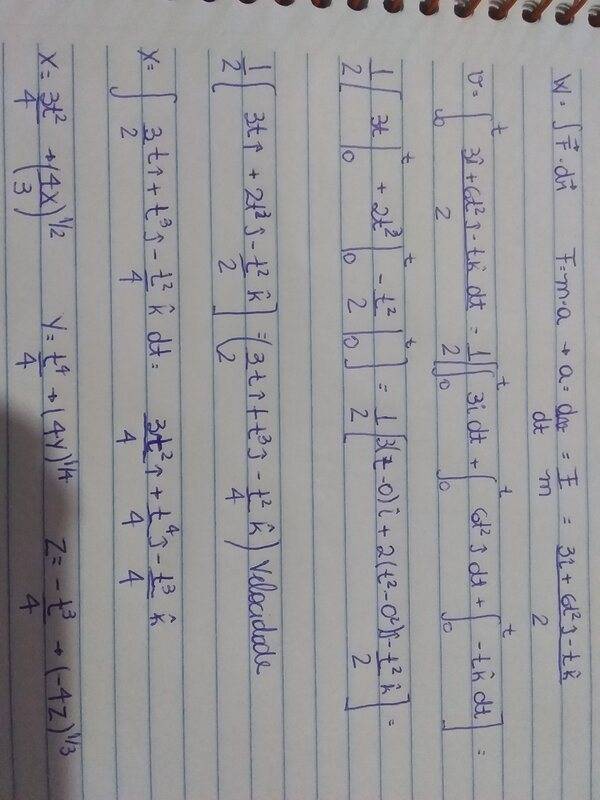 W = ∫ F⃗ · dr⃗   F = m·a → a = dv/dt = F/m = (3î + 6t²ĵ - tk̂)/2
v = ∫₀ᵗ (3î + 6t²ĵ - tk̂)/2 dt = 1/2 [∫₀ᵗ 3î dt + ∫₀ᵗ 6t²ĵ dt + ∫₀ᵗ -tk̂ dt] =
1/2 [3t|₀ᵗ + 2t³|₀ᵗ - t²/2|₀ᵗ] = 1/2 [3(t-0)î + 2(t²-0²)ĵ - t²/2 k̂] =
1/2 [3tî + 2t³ĵ - t²/2 k̂] = (3/2 tî + t³ĵ - t²/4 k̂) Velocidade
X = ∫ 3/2 tî + t³ĵ - t²/4 k̂ dt = 3t²/4 î + t⁴/4 ĵ - t³/4 k̂
X = 3t²/4 → (4X/3)^1/2   Y = t⁴/4 → (4Y)^1/4   Z = -t³/4 → (-4Z)^1/3